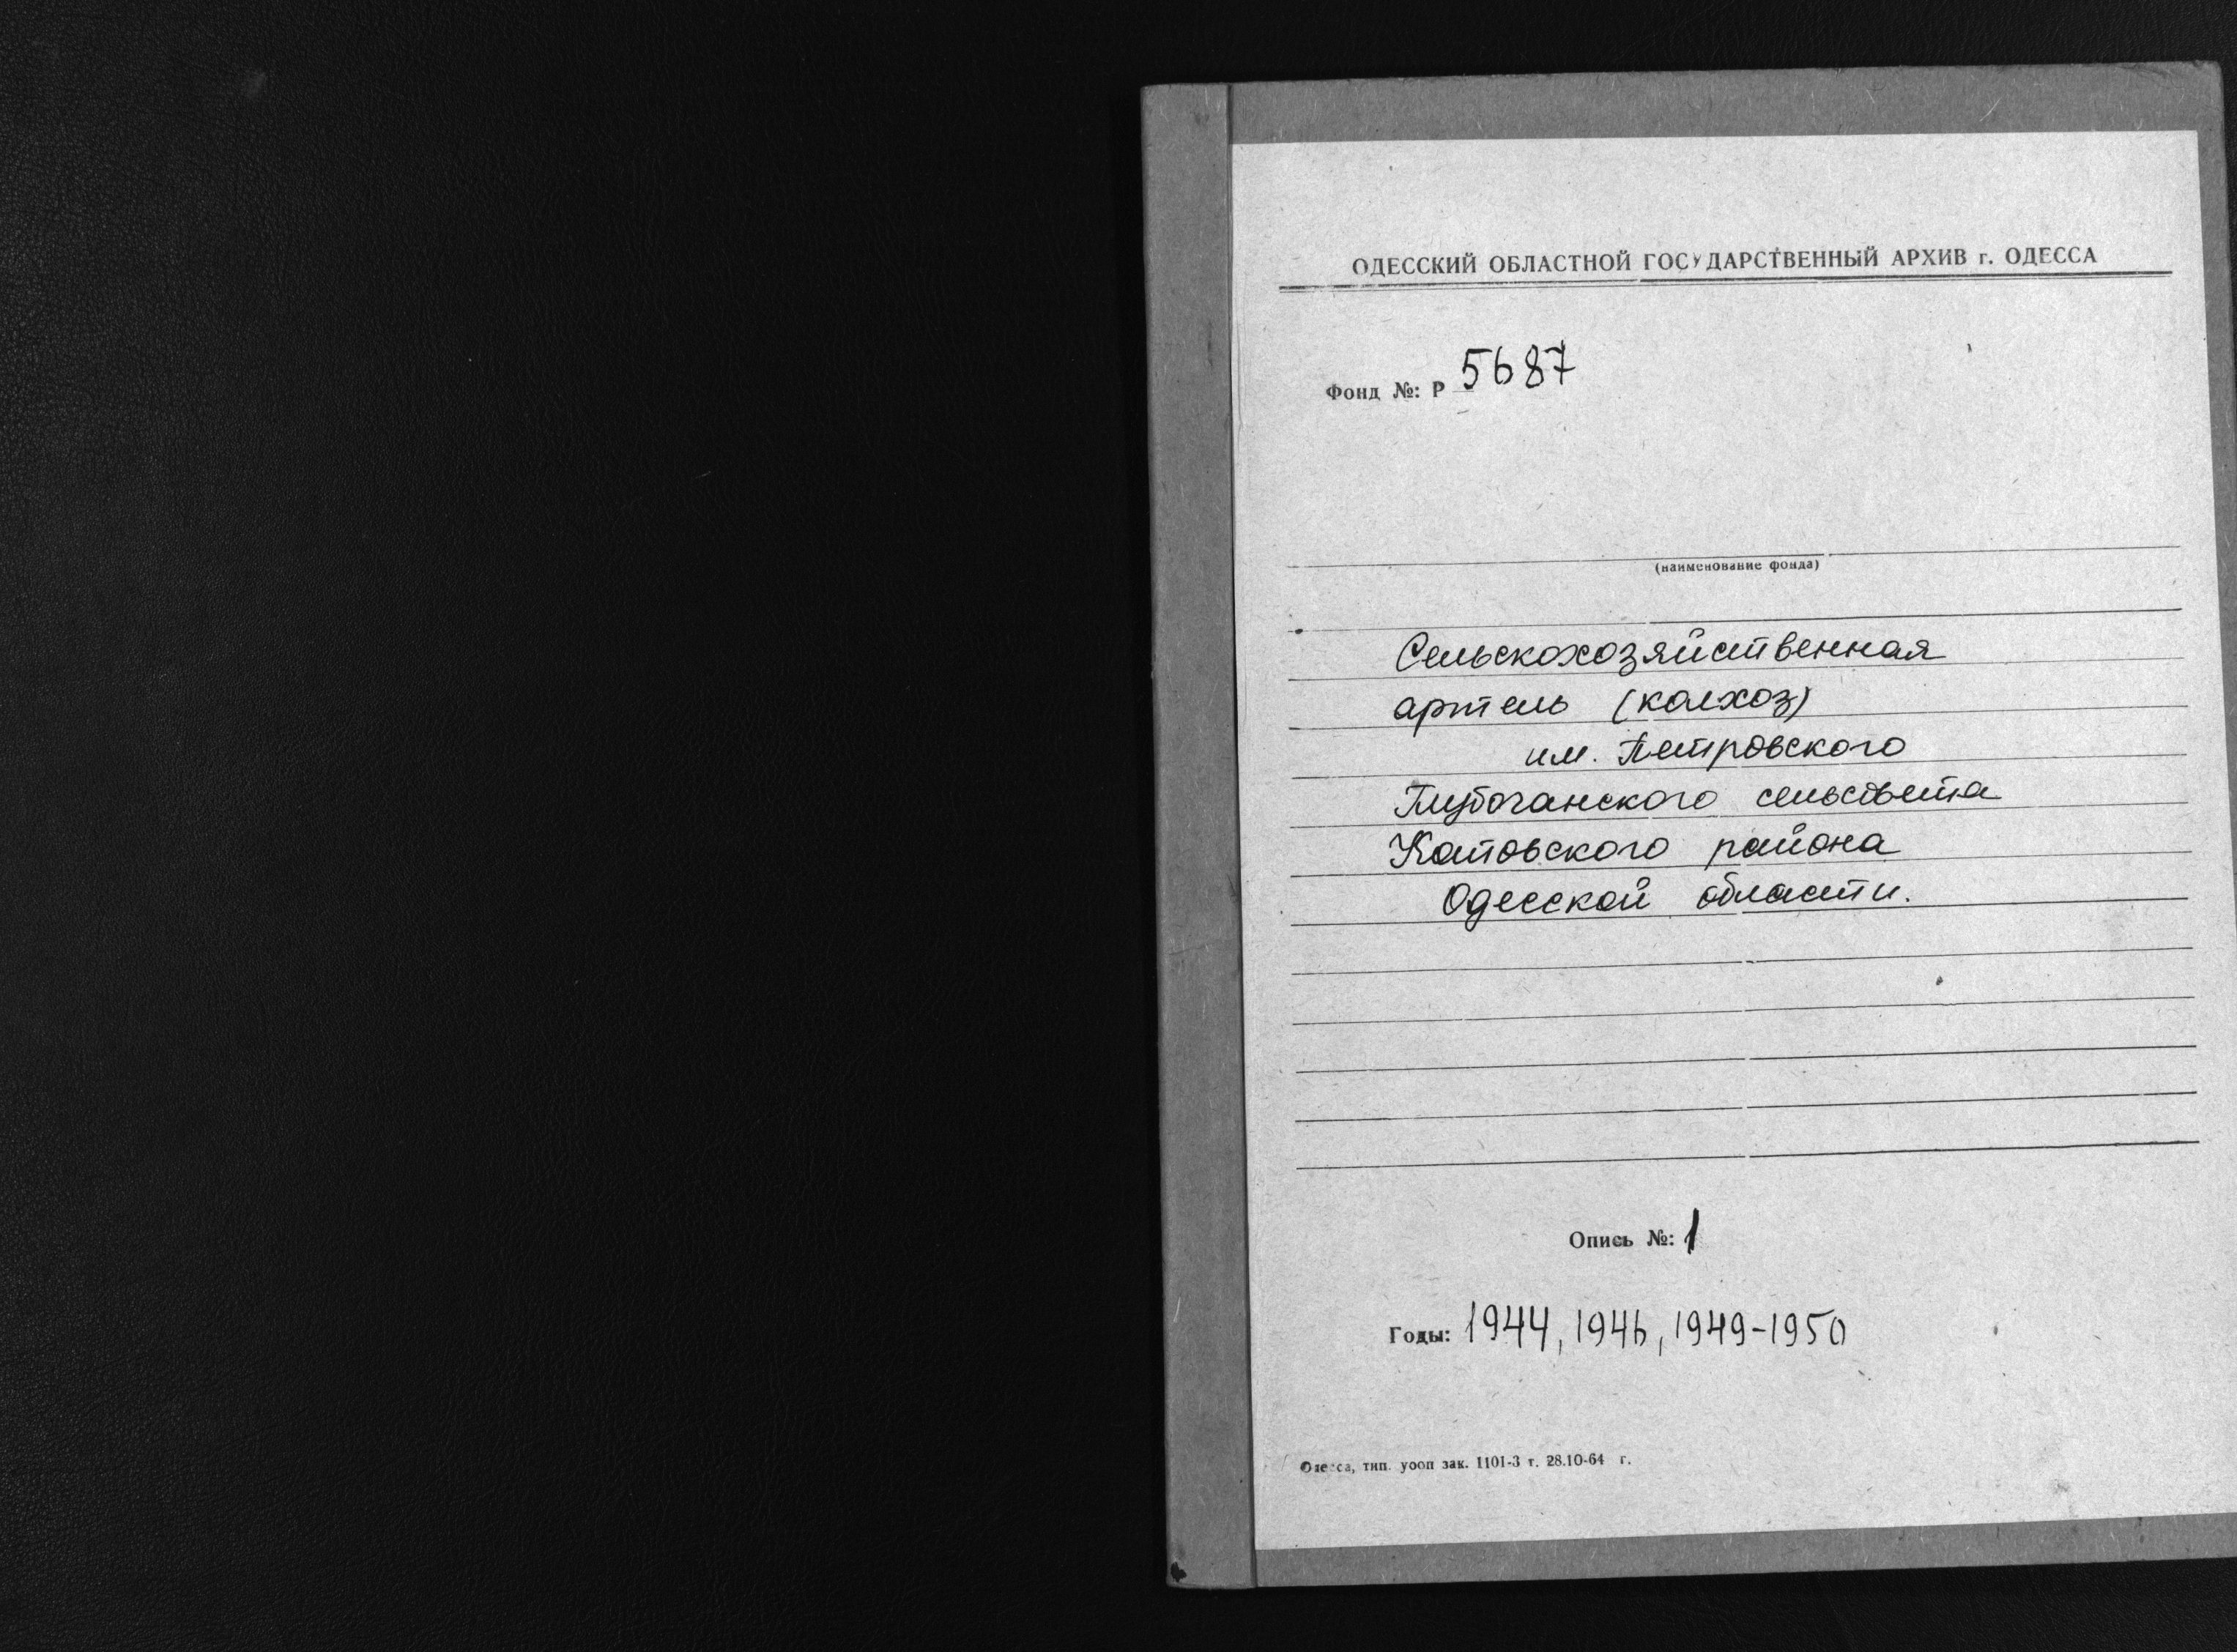 ОДЕССКИЙ ОБЛАСТНОЙ ГОСУДАРСТВЕННЫЙ АРХИВ г. ОДЕССА
Фонд №: Р 5687
(наименование фонда)
Сельскохозяйственная
артель (колхоз)
им. Петровского
Глубочанского сельсовета
Котовского района
Одесской области.
Опись №: 1
Годы: 1944, 1946, 1949-1950
Одесса, тип. уооп зак. 1101-3 т. 28.10-64 г.